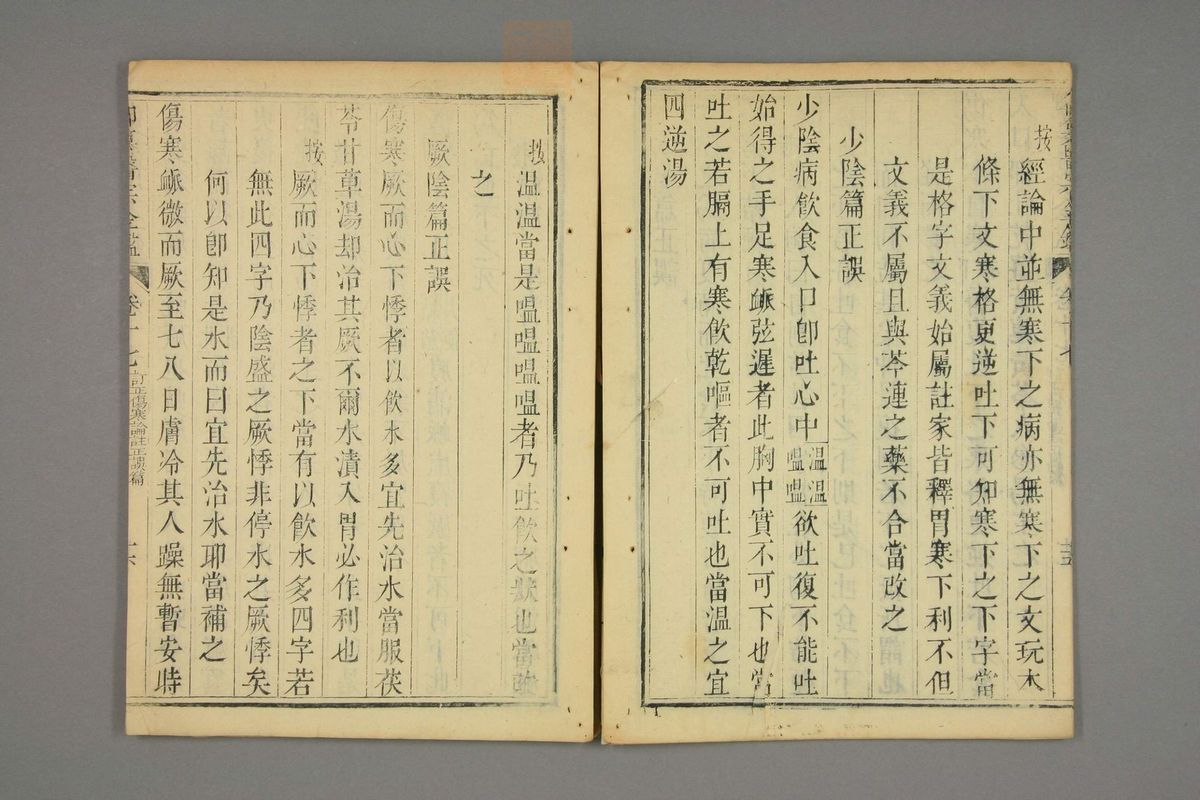 按
經論中並無寒下之病亦無寒下之文玩本
條下文寒格更逆吐下可知寒下之下字當
是格字文義始屬註家皆釋胃寒下利不但
文義不屬且與芩連之藥不合當改之
少陰篇正誤
少陰病飲食入口卽吐心中溫溫嗢嗢欲吐復不能吐
始得之手足寒脈弦遲者此胸中實不可下也當
吐之若膈上有寒飲乾嘔者不可吐也當溫之宜
四逆湯
按
溫溫當是嗢嗢嗢嗢者乃吐飲之狀也當改
之
厥陰篇正誤
傷寒厥而心下悸者以飲水多宜先治水當服茯
苓甘草湯却治其厥不爾水漬入胃必作利也
按
厥而心下悸者之下當有以飲水多四字若
無此四字乃陰盛之厥悸非停水之厥悸矣
何以卽知是水而曰宜先治水耶當補之
傷寒脈微而厥至七八日膚冷其人躁無暫安時
卷十七 訂正傷寒論註正誤篇